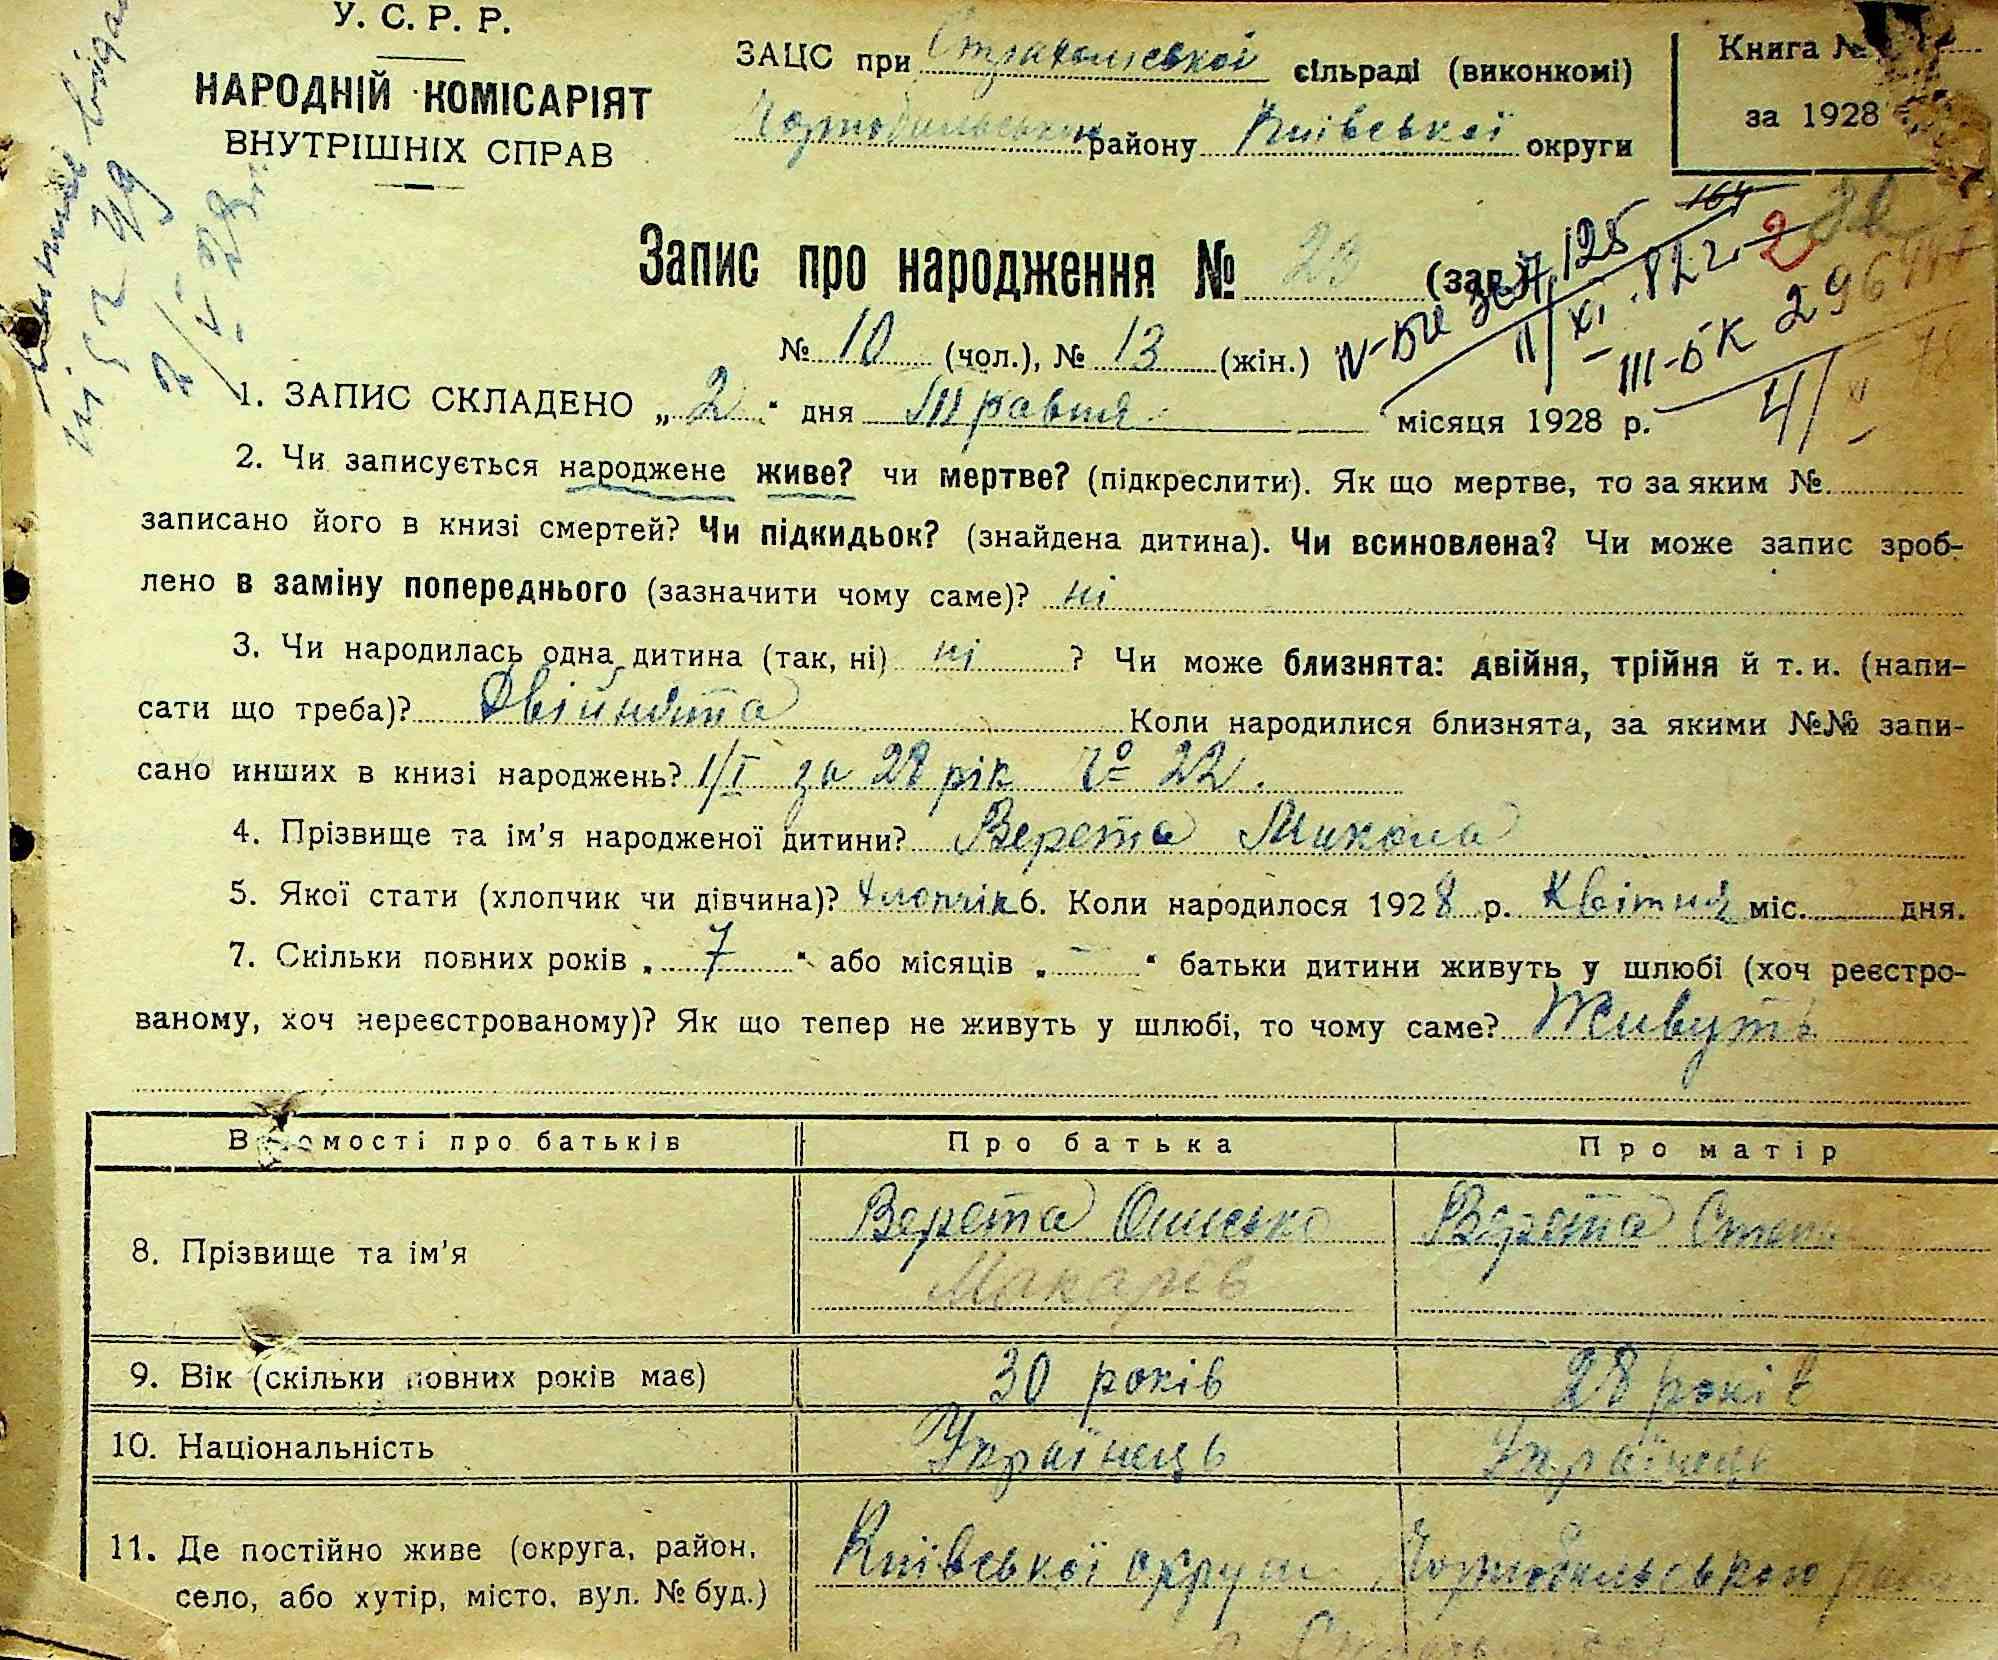 У. С. Р. Р.
НАРОДНІЙ КОМІСАРІЯТ
ВНУТРІШНІХ СПРАВ
ЗАЦС при Страхоліської сільраді (виконкомі)
Чорнобильського району Київської округи
Книга №
за 1928
Запис про народження № 23 (заг.)
№ 10 (чол.), № 13 (жін.)
125
164
II/XI 82 г. 2
III-БК 296447
4/V 78
1. ЗАПИС СКЛАДЕНО „ 2 “ дня Травня місяця 1928 р.
2. Чи записується народжене живе? чи мертве? (підкреслити). Як що мертве, то за яким №
записано його в книзі смертей? Чи підкидьок? (знайдена дитина). Чи всиновлена? Чи може запис зроб-
лено в заміну попереднього (зазначити чому саме)? ні
3. Чи народилась одна дитина (так, ні) ні ? Чи може близнята: двійня, трійня й т. и. (напи-
сати що треба)? Двійнята Коли народилися близнята, за якими №№ запи-
сано инших в книзі народжень? 1/I за 28 рік № 22.
4. Прізвище та ім’я народженої дитини? Верета Микола
5. Якої стати (хлопчик чи дівчина)? хлопчік 6. Коли народилося 1928 р. Квітня міс. дня.
7. Скільки повних років „ 7 “ або місяців „ - “ батьки дитини живуть у шлюбі (хоч реєстро-
ваному, хоч нереєстрованому)? Як що тепер не живуть у шлюбі, то чому саме? Живуть
Відомості про батьків Про батька Про матір
8. Прізвище та ім’я Верета Онисько Верета
Макарів
9. Вік (скільки повних років має) 30 років 28 років
10. Національність Українець Українець
11. Де постійно живе (округа, район, Київської округи Чорнобильського
село, або хутір, місто, вул. № буд.)